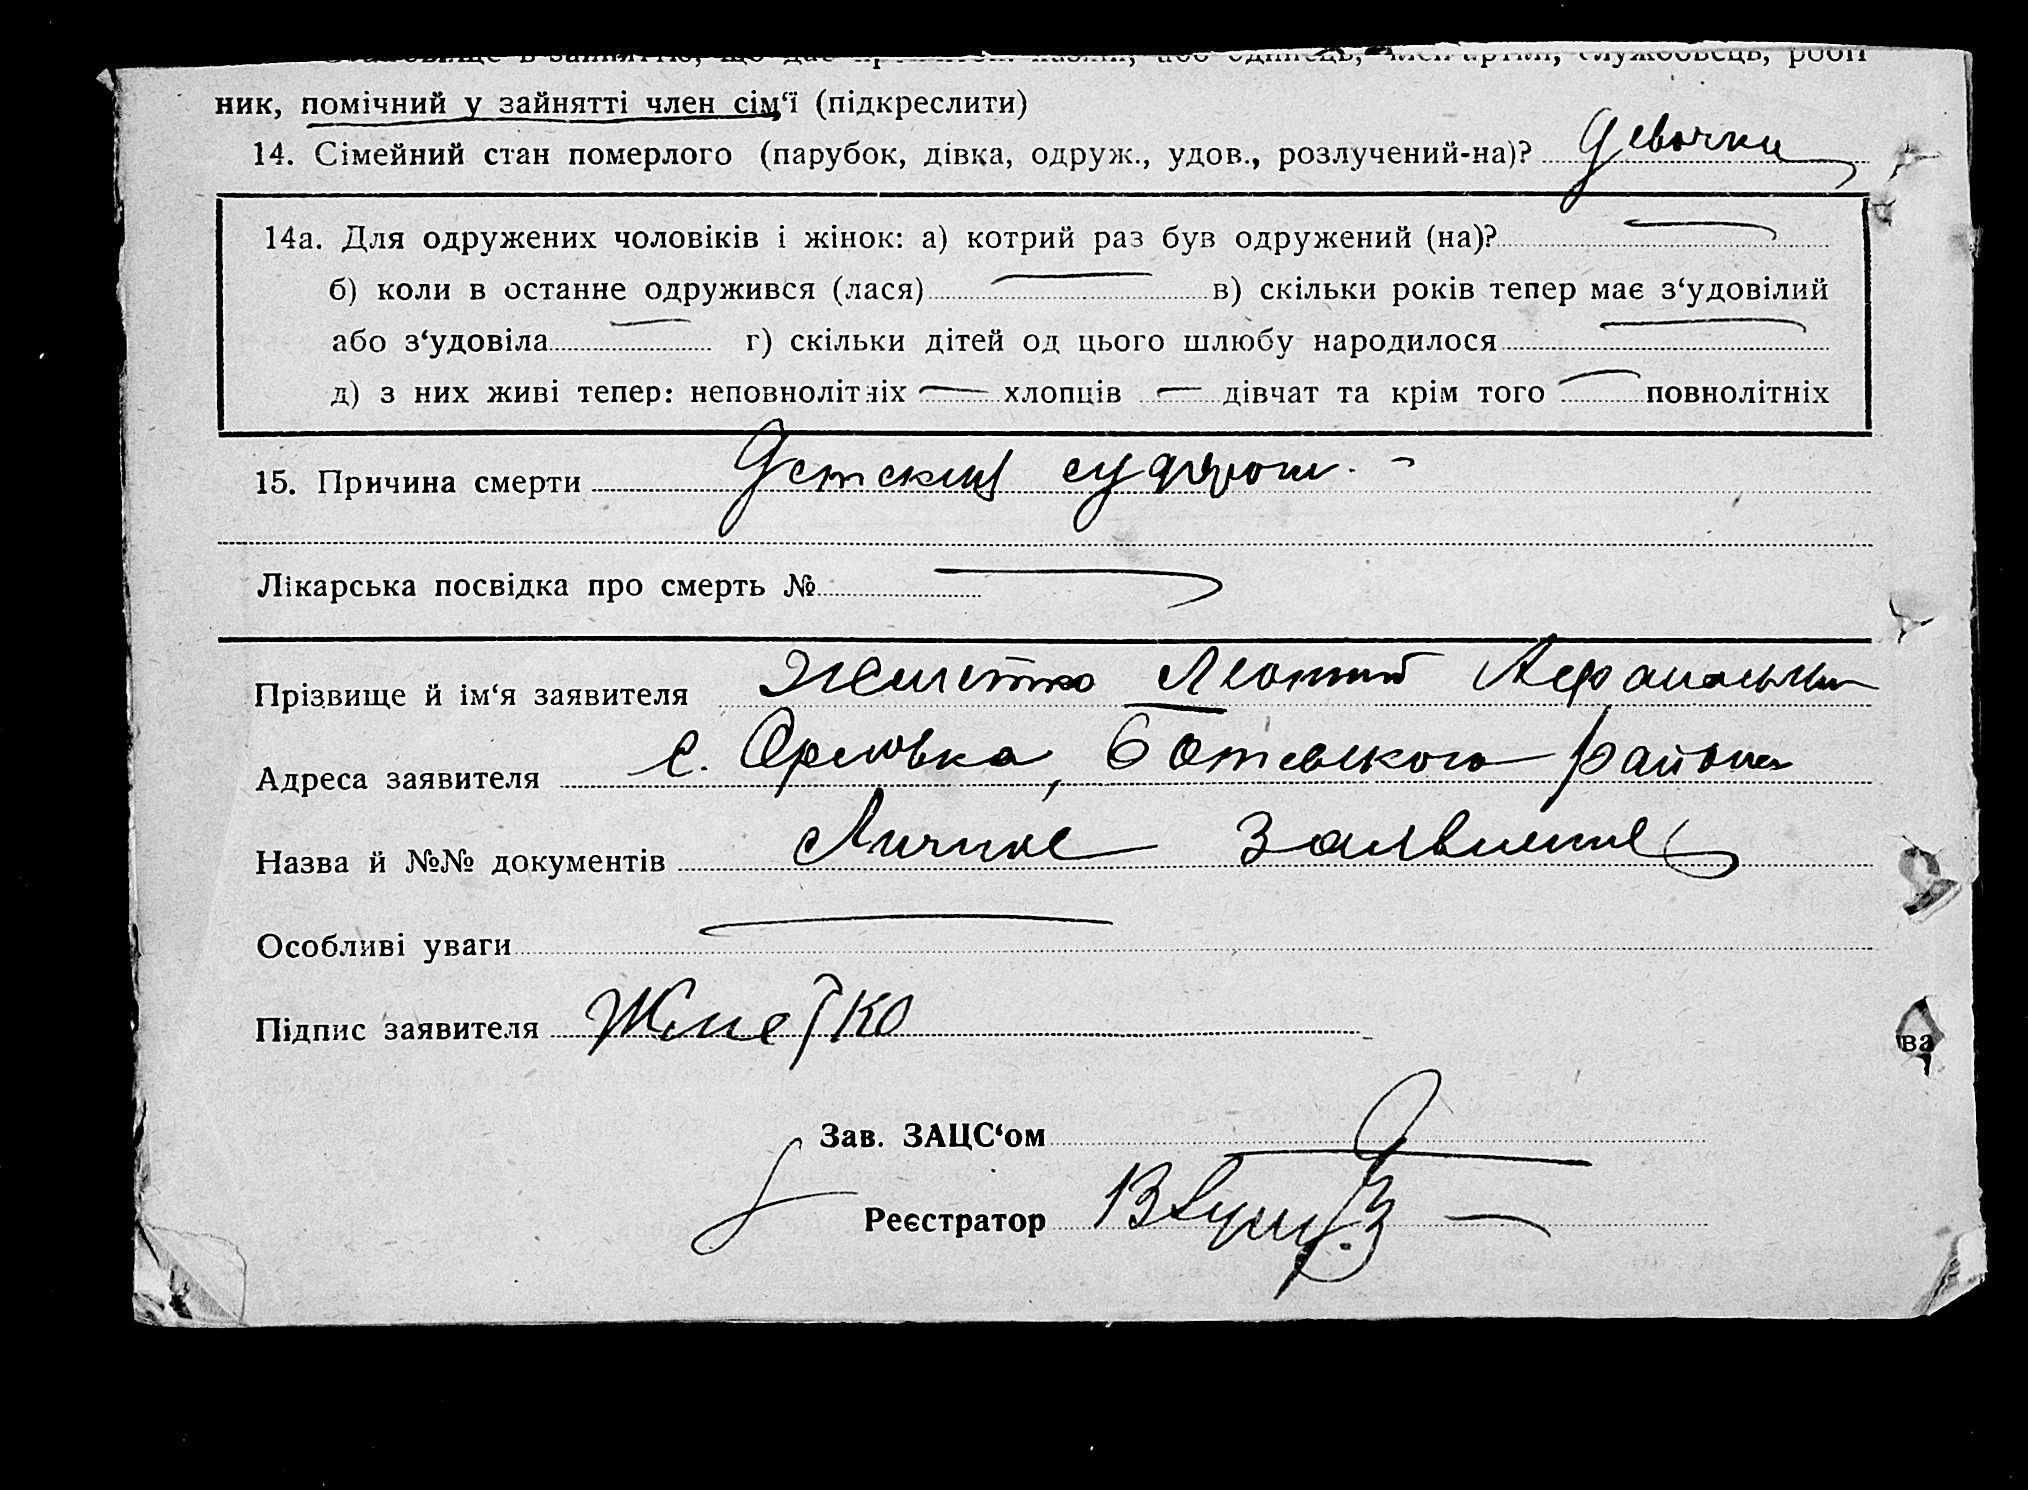 ник, помічний у зайнятті член сім‘ї (підкреслити)
14. Сімейний стан померлого (парубок, дівка, одруж., удов., розлучений-на)? девочка
14а. Для одружених чоловіків і жінок: а) котрий раз був одружений (на)?
б) коли в останне одружився (лася) в) скільки років тепер має з‘удовілий
або з‘удовіла г) скільки дітей од цього шлюбу народилося
д) з них живі тепер: неповнолітніх — хлопців — дівчат та крім того — повнолітніх
15. Причина смерти Детский
Лікарська посвідка про смерть №
Прізвище й ім‘я заявителя Леонтий
Адреса заявителя с. Орловка, Ботевского района
Назва й №№ документів Личное Заявление
Особливі уваги
Підпис заявителя
Зав. ЗАЦС‘ом
Реєстратор
ва